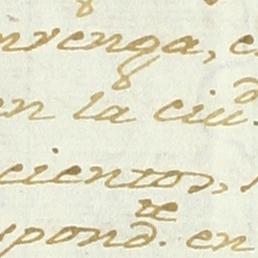 nvenga, e
en la ciu.ᵈ
cientos,
spond.ᵗᵉ en